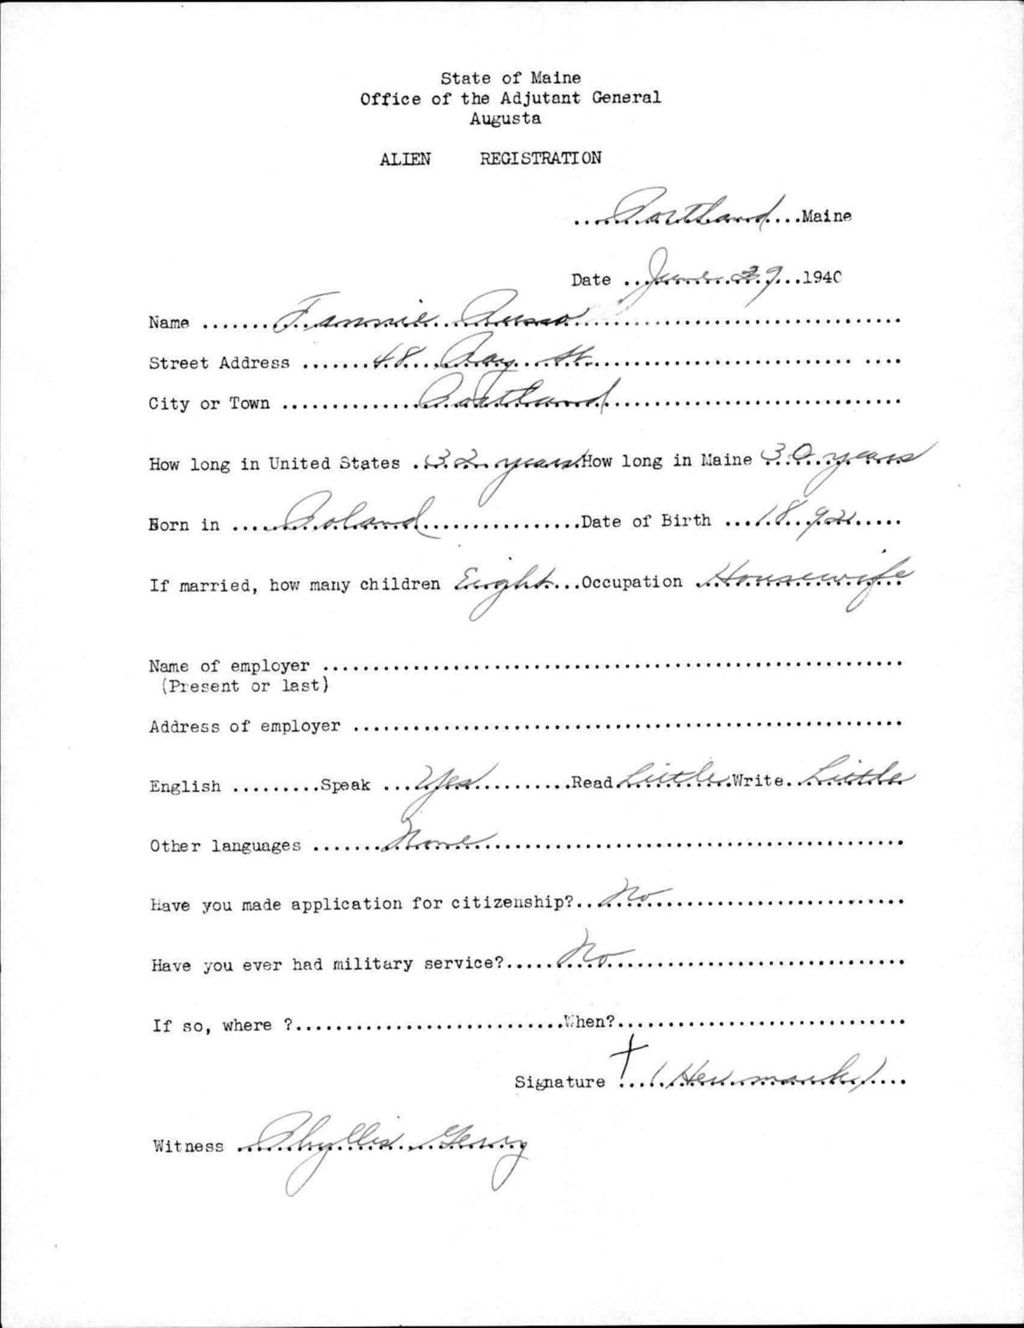 State of Maine
Office of the Adjutant General
Augusta
ALIEN REGISTRATION
Portland Maine
Date June 29 1940
Name Fannie Russo
Street Address 48 St.
City or Town Portland
How long in United States 32 years How long in Maine 30 years
Born in Poland Date of Birth 1892
If married, how many children Eight Occupation Housewife
Name of employer
(Present or last)
Address of employer
English Speak Yes Read Little Write Little
Other languages None
Have you made application for citizenship? No
Have you ever had military service? No
If so, where ? When?
Signature † (Her mark)
Witness Phyllis Gerry